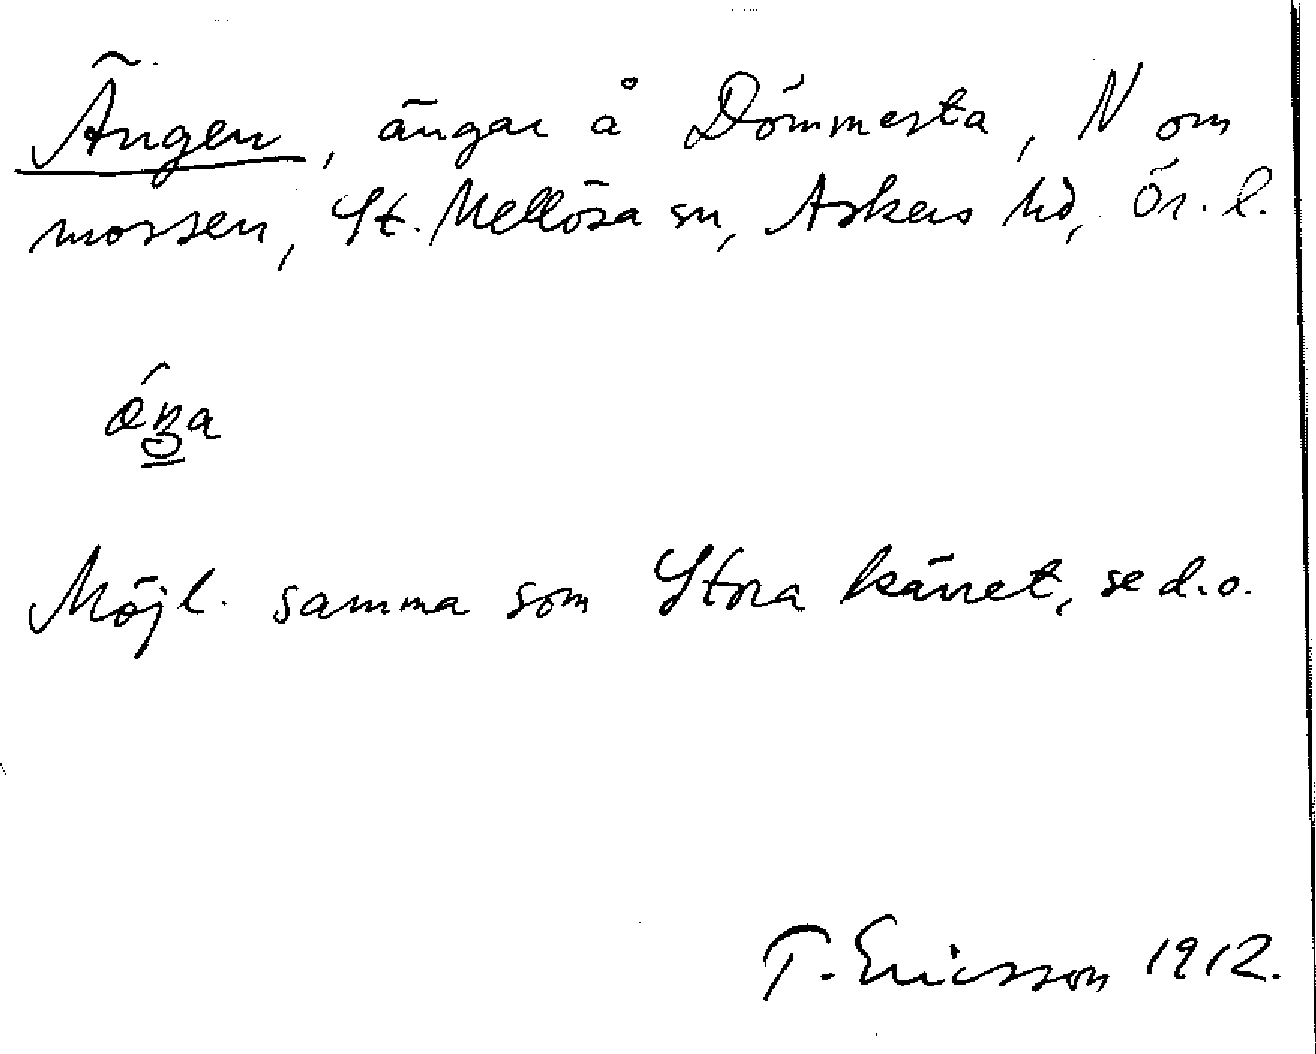 Ängen, ängar å Dömmesta, N om
mossen, St. Mellösa sn, Askers hd, Ör. l.
Möjl. samma som Stora kärret, se d.o.
T. Ericsson 1912.